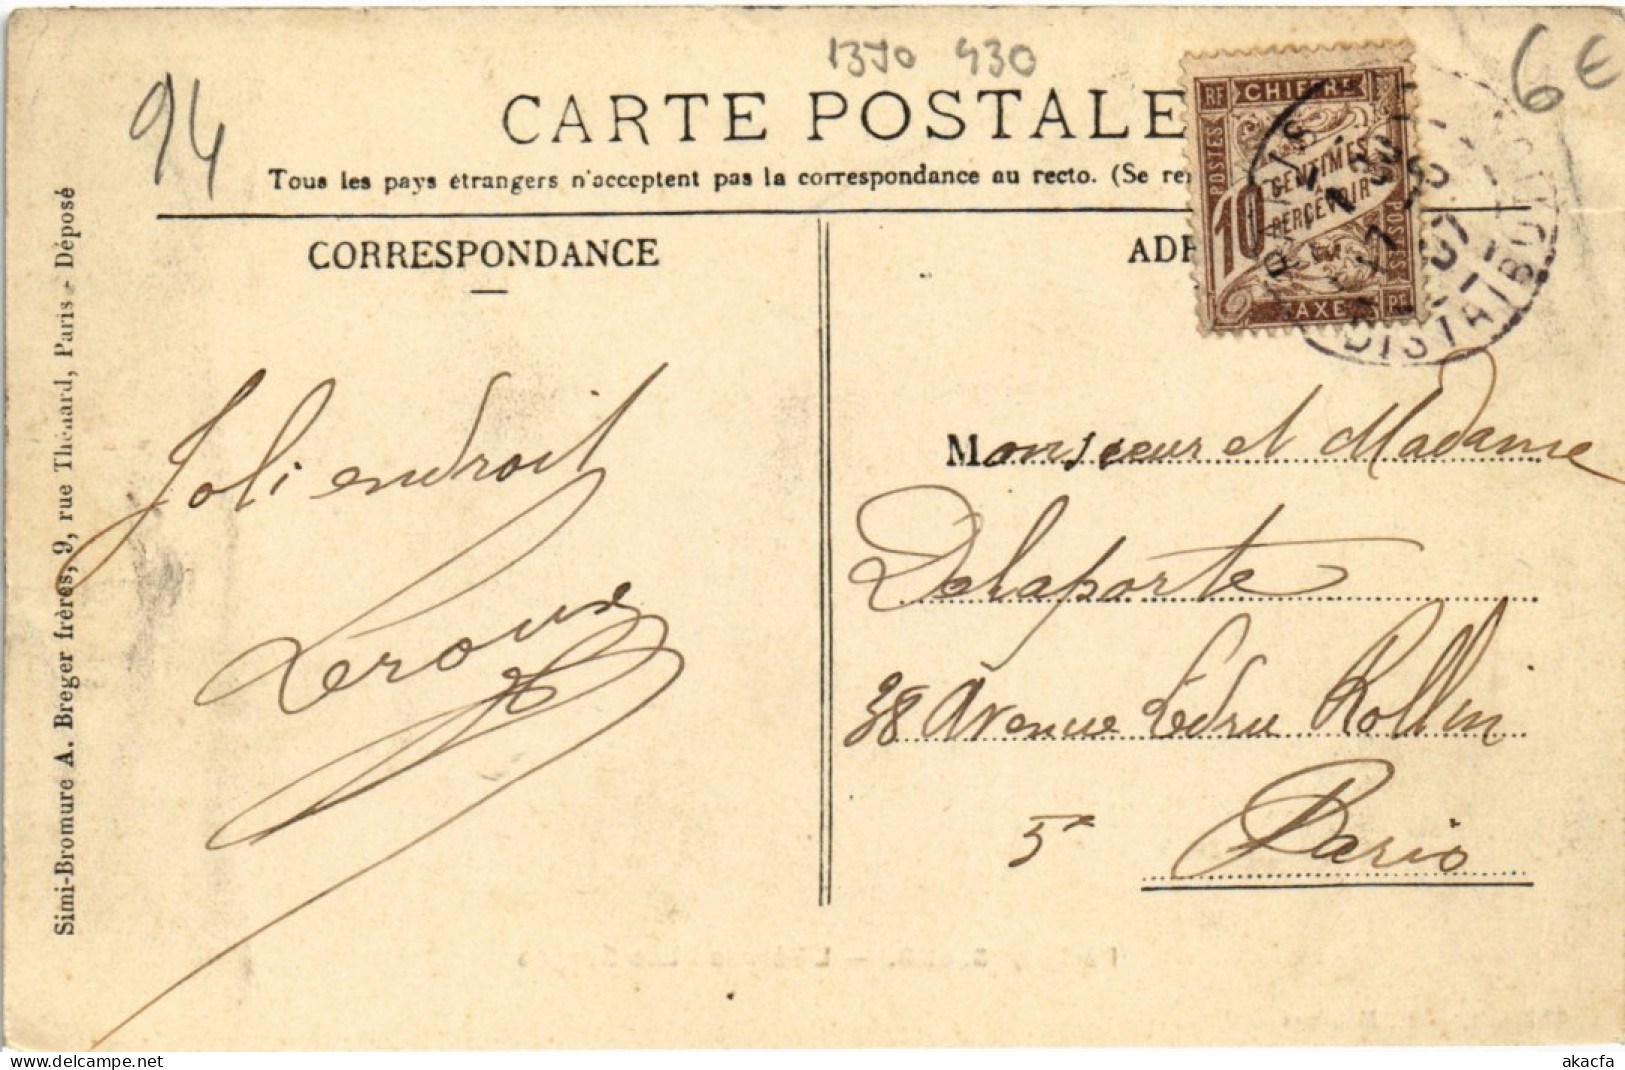 1370 430
6€
94
CARTE POSTALE
Tous les pays étrangers n'acceptent pas la correspondance au recto. (Se re
RF CHIFFRE
POSTES
CENTIMES
A
PERCEVOIR
10
POSTES
TAXE
RF
PARIS
07
DISTRIBUTION
CORRESPONDANCE
Joli endroit
Leroux
Monsieur et Madame
Delaporte
38 Avenue Ledru Rollin
5e Paris
Simi-Bromure A. Breger frères, 9, rue Thénard, Paris - Déposé
akacfa